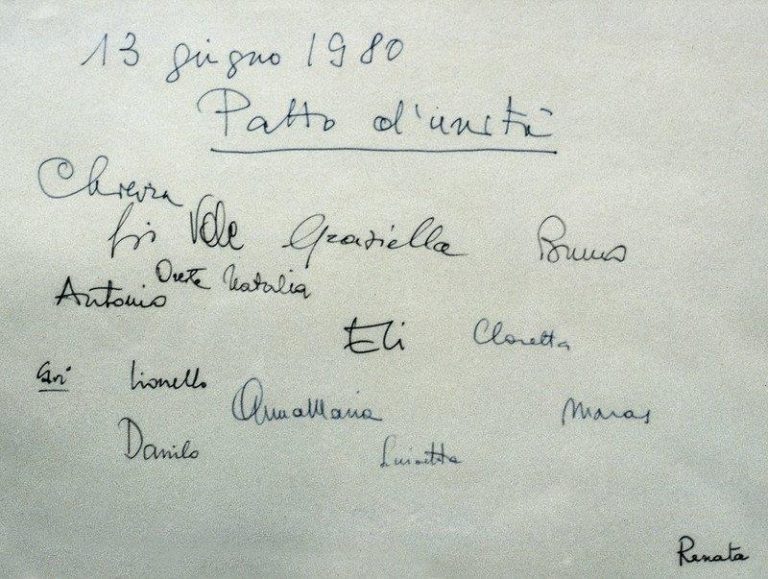 13 giugno 1980
Patto d'unità
Chiara
Gis Vale Graziella Bruna
Antonio Oreste Natalia
Eli Cloretta
Lionello
AnnaMaria Maras
Danilo Luisetta
Renata